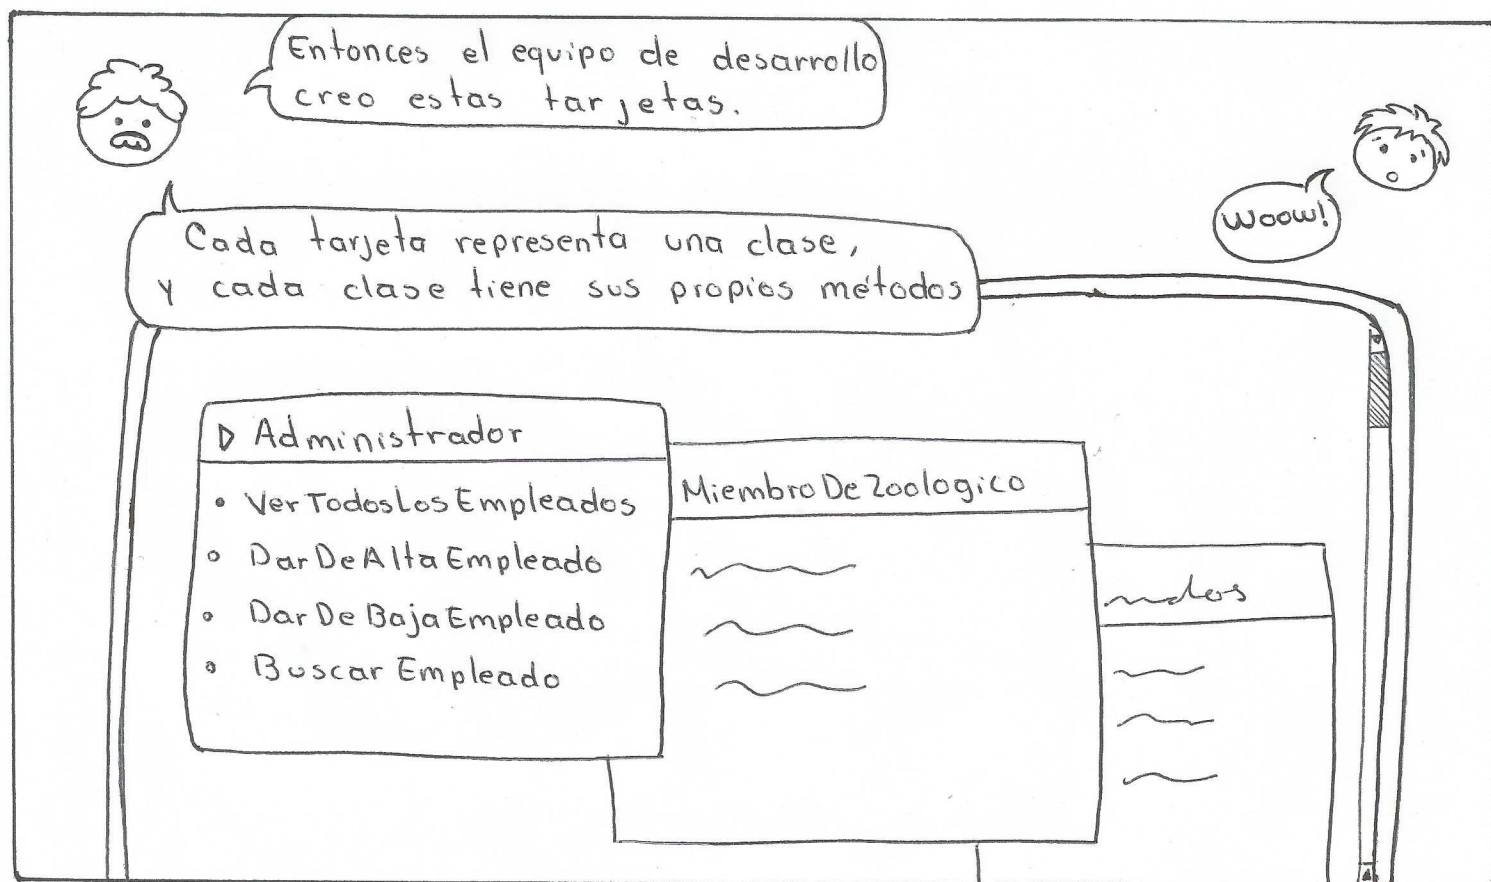 Entonces el equipo de desarrollo
creo estas tarjetas.
Woow!
Cada tarjeta representa una clase,
y cada clase tiene sus propios métodos
Administrador
• VerTodosLosEmpleados
• DarDeAltaEmpleado
• DarDeBajaEmpleado
• BuscarEmpleado
MiembroDeZoologico